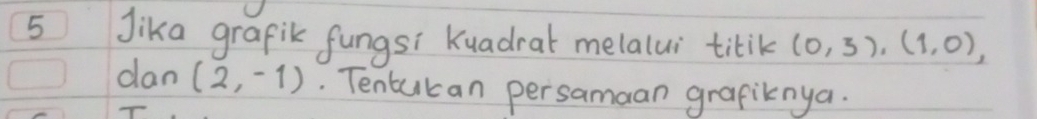 5 Jika grafik fungsi kuadrat melalui titik (0,3), (1,0),
dan (2,-1). Tentukan persamaan grafiknya.